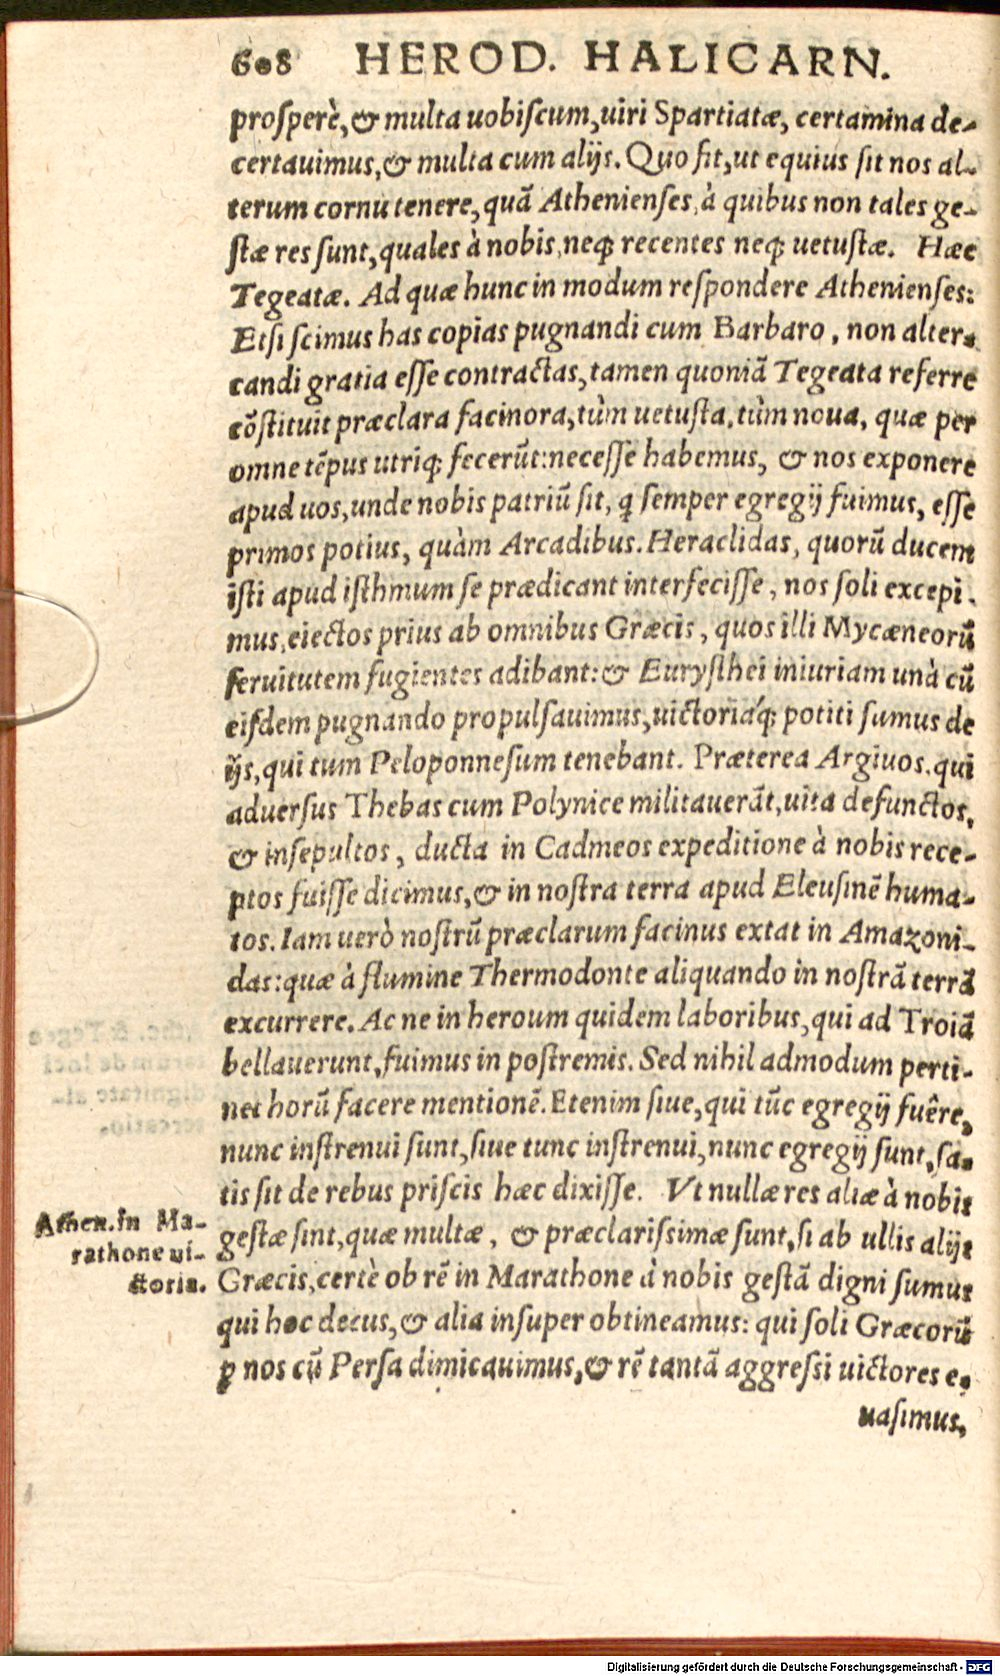 608 HEROD. HALICARN.
proſperè, & multa uobiſcum, uiri Spartiatæ, certamina de-
certauimus, & multa cum alijs. Quo fit, ut equius ſit nos al-
terum cornu tenere, quã Athenienſes, à quibus non tales ge-
ſtæ res ſunt, quales à nobis, neq; recentes neq; uetuſtæ. Hæc
Tegeatæ. Ad quæ hunc in modum reſpondere Athenienſes:
Etſi ſcimus has copias pugnandi cum Barbaro, non alter-
candi gratia eſſe contractas, tamen quoniã Tegeata referre
cõſtituit præclara facinora, tùm uetuſta, tùm noua, quæ per
omne tẽpus utriq; fecerũt: neceſſe habemus, & nos exponere
apud uos, unde nobis patriũ ſit, ꝗ ſemper egregij fuimus, eſſe
primos potius, quàm Arcadibus. Heraclidas, quorũ ducem
iſti apud iſthmum ſe prædicant interfeciſſe, nos ſoli excepi-
mus, eiectos prius ab omnibus Græcis, quos illi Mycæneorũ
ſeruitutem fugientes adibant: & Euryſthei iniuriam unà cũ
eiſdem pugnando propulſauimus, uictoriáq; potiti ſumus de
ijs, qui tum Peloponneſum tenebant. Præterea Argiuos, qui
aduerſus Thebas cum Polynice militauerãt, uita defunctos,
& inſepultos, ducta in Cadmeos expeditione à nobis rece-
ptos fuiſſe dicimus, & in noſtra terra apud Eleuſinẽ huma-
tos. Iam uerò noſtrũ præclarum facinus extat in Amazoni-
das: quæ à flumine Thermodonte aliquando in noſtrã terrã
excurrere. Ac ne in heroum quidem laboribus, qui ad Troiã
bellauerunt, fuimus in poſtremis. Sed nihil admodum perti-
net horũ facere mentionẽ. Etenim ſiue, qui tũc egregij fuêre,
nunc inſtrenui ſunt, ſiue tunc inſtrenui, nunc egregij ſunt, ſa-
tis ſit de rebus priſcis hæc dixiſſe. Vt nullæ res aliæ à nobis
Athen. in Ma-
rathone ui-
ctoria.
geſtæ ſint, quæ multæ, & præclariſsimæ ſunt, ſi ab ullis alijs
Græcis, certè ob rẽ in Marathone à nobis geſtã digni ſumus
qui hoc decus, & alia inſuper obtineamus: qui ſoli Græcorũ
ꝑ nos cũ Perſa dimicauimus, & rẽ tantã aggreſſi uictores e-
uaſimus,
Digitalisierung gefördert durch die Deutsche Forschungsgemeinschaft - DFG